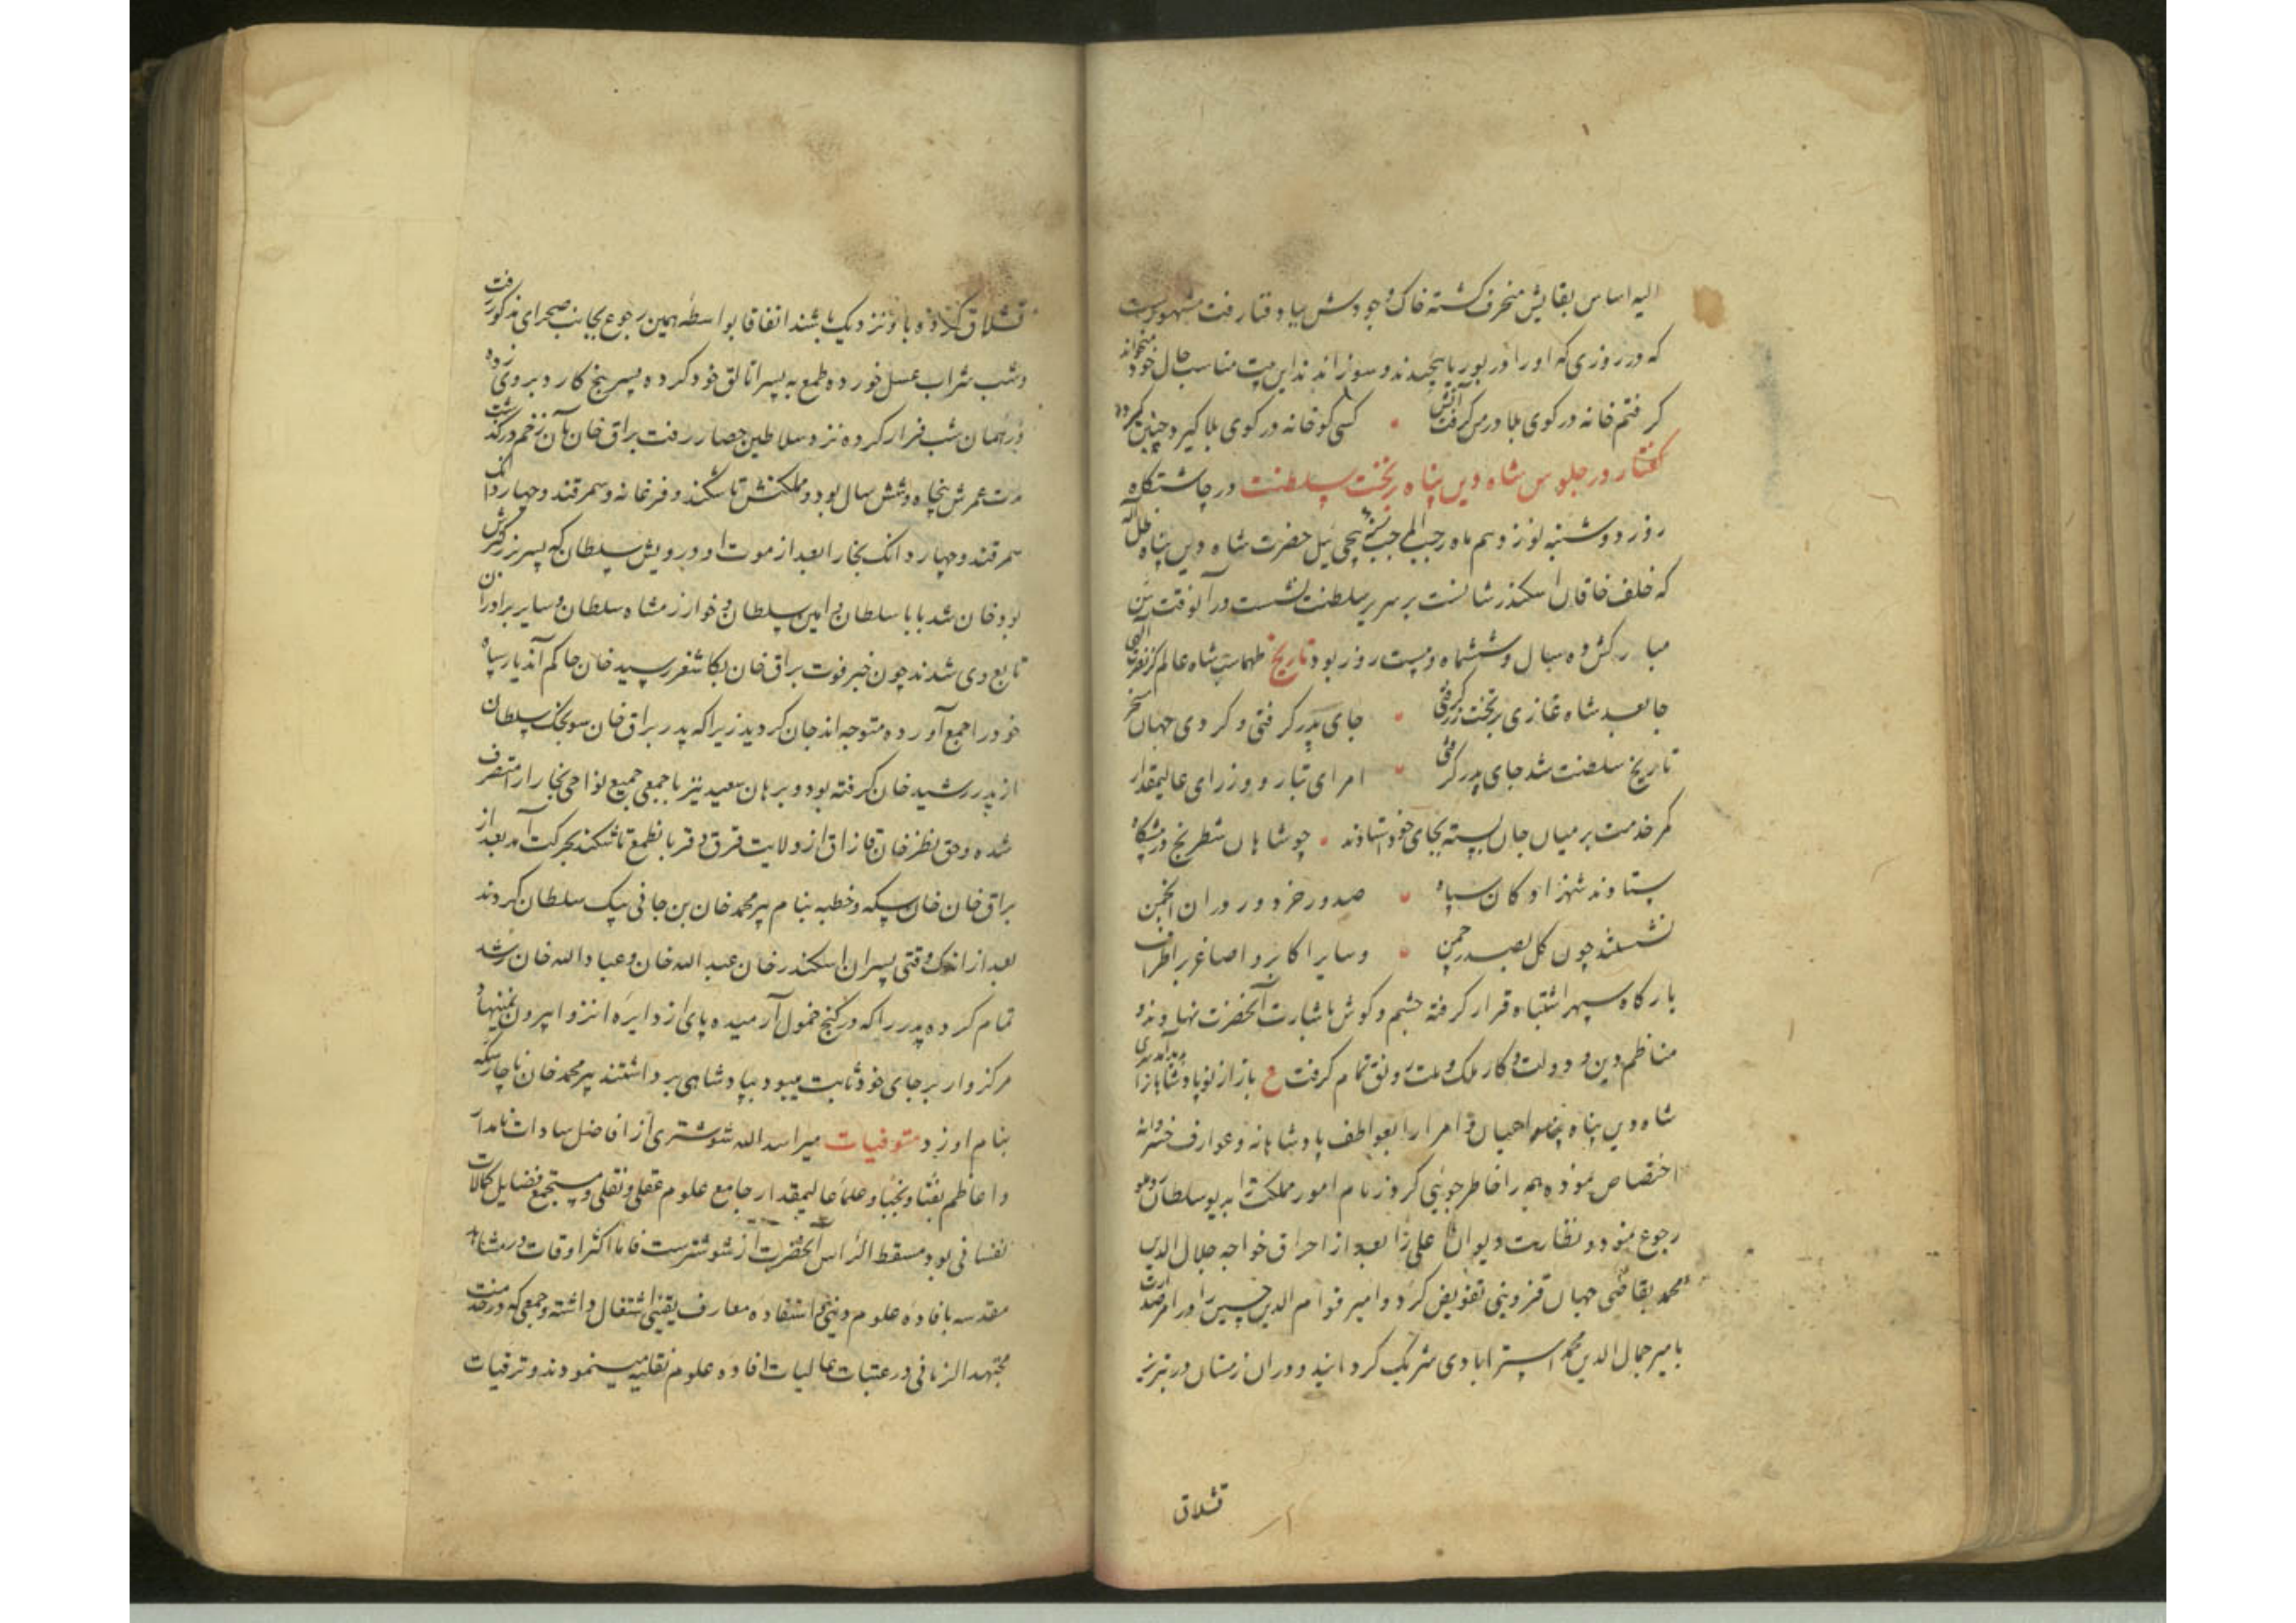 الیه اساس بقایش منحرف کشته خاک وجودش بباد فنا رفت مشهورست
که در روزی که او را در بوریا پیچیدند و سوزاندند این بیت مناسب حال خود میخواند
گرفتم خانه در کوی بلا در من گرفت آتش • کسی کو خانه در کوی بلا گیرد چنین گیرد
گفتار در جلوس شاه دین پناه بر تخت سلطنت در چاشتگاه
روز دوشنبه نوزدهم ماه رجب المرجب سنه پیچی ئیل حضرت شاه دین پناه ظل اله
که خلف خاقان اسکندر شانست بر سریر سلطنت نشست در آنوقت سن
مبارکش ده سال و ششماه و بیست روز بود تاریخ طهماسب شاه عالم کز نصرت الهی
جا بعد شاه غازی بر تخت زر گرفتی • جای پدر گرفتی و کردی جهان مسخر
تاریخ سلطنت شد جای پدر گرفتی • امرای تبار و وزرای عالیمقدار
کمر خدمت بر میان جان بسته بجای خود ستادند • چو شاهان شطرنج در پیشگاه
ستادند شهزادکان سپاه • صدور خردور در آن انجمن
نشستند چون کل بصدر چمن • و سایر اکابر و اصاغر بر اطراف
بارکاه سپهر اشتباه قرار گرفته چشم و کوش باشارت آنحضرت نهادند و
مناظم دین و دولت و کار ملک و ملت رونق تمام گرفت ع باز از نو پادشاهی را
شاه دین پناه اعیان و امرا را بعواطف پادشاهانه و عوارف خسروانه
اختصاص نموده همه را خاطر جوئی کرد زمام امور مملکت به دیو سلطان روملو
رجوع نمود و نظارت دیوان اعلی را بعد از احراق خواجه جلال الدین
محمد بقاضی جهان قزوینی تفویض کرد و امیر قوام الدین حسین را در امر صدارت
با میر جمال الدین محمد استرابادی شریک کردانید و در آن زمستان در تبریز
قشلاق
قشلاق کرده باو نزدیک باشند اتفاقا بواسطه همین رجوع بجانب صحرای مذکور رفت
و شب شراب عسل خورده طمع به پسر اتالق خود کرده پسر پنج کارد بر وی زده
در همان شب فرار کرده نزد سلاطین حصار رفت براق خان بآن زخم درگذشت
مدت عمرش پنجاه و شش سال بود و مملکتش تاشکند و فرغانه و سمرقند و چهار دانک
سمرقند و چهار دانک بخارا بعد از موت او درویش سلطان که پسر بزرکترش
بود خان شد بابا سلطان و امین سلطان و خوارزمشاه سلطان و سایر برادران
تابع وی شدند چون خبر فوت براق خان بکاشغر رسید خان حاکم آن دیار سپاه
خود را جمع آورده متوجه اندجان کردید زیرا که پدر براق خان سونجک سلطان
از پدر رشید خان گرفته بود و برهان سعید نیز با جمعی جمیع نواحی بخارا را متصرف
شده و حق نظر خان قازاق از ولایت قرق و قربا بطمع تاشکند بحرکت آمد بعد از
براق خان خان سکه و خطبه بنام پیر محمد خان بن جانی بیک سلطان کردند
بعد از اندک وقتی پسران اسکندر خان عبد الله خان و عباد الله خان رشد
تمام کرده پدر را که در کنج خمول آرمیده پای از دایره انزوا بیرون نمینهاد و
مرکز وار بر جای خود ثابت میبود بپادشاهی برداشتند پیر محمد خان ناچار سکه
بنام او زد متوفیات میر اسد الله شوشتری از افاضل سادات نامدار
و اعاظم نقبا و نجبا و علماء عالیمقدار جامع علوم عقلی و نقلی و مستجمع فضایل و کمالات
نفسانی بود مسقط الراس آنحضرت از شوشترست فاما اکثر اوقات در مشاهد
مقدسه بافاده علوم دینی و استفاده معارف یقینی اشتغال داشته و جمعی که در خدمت
مجتهد الزمانی در عتبات عالیات افاده علوم نقلیه مینمودند و ترقیات